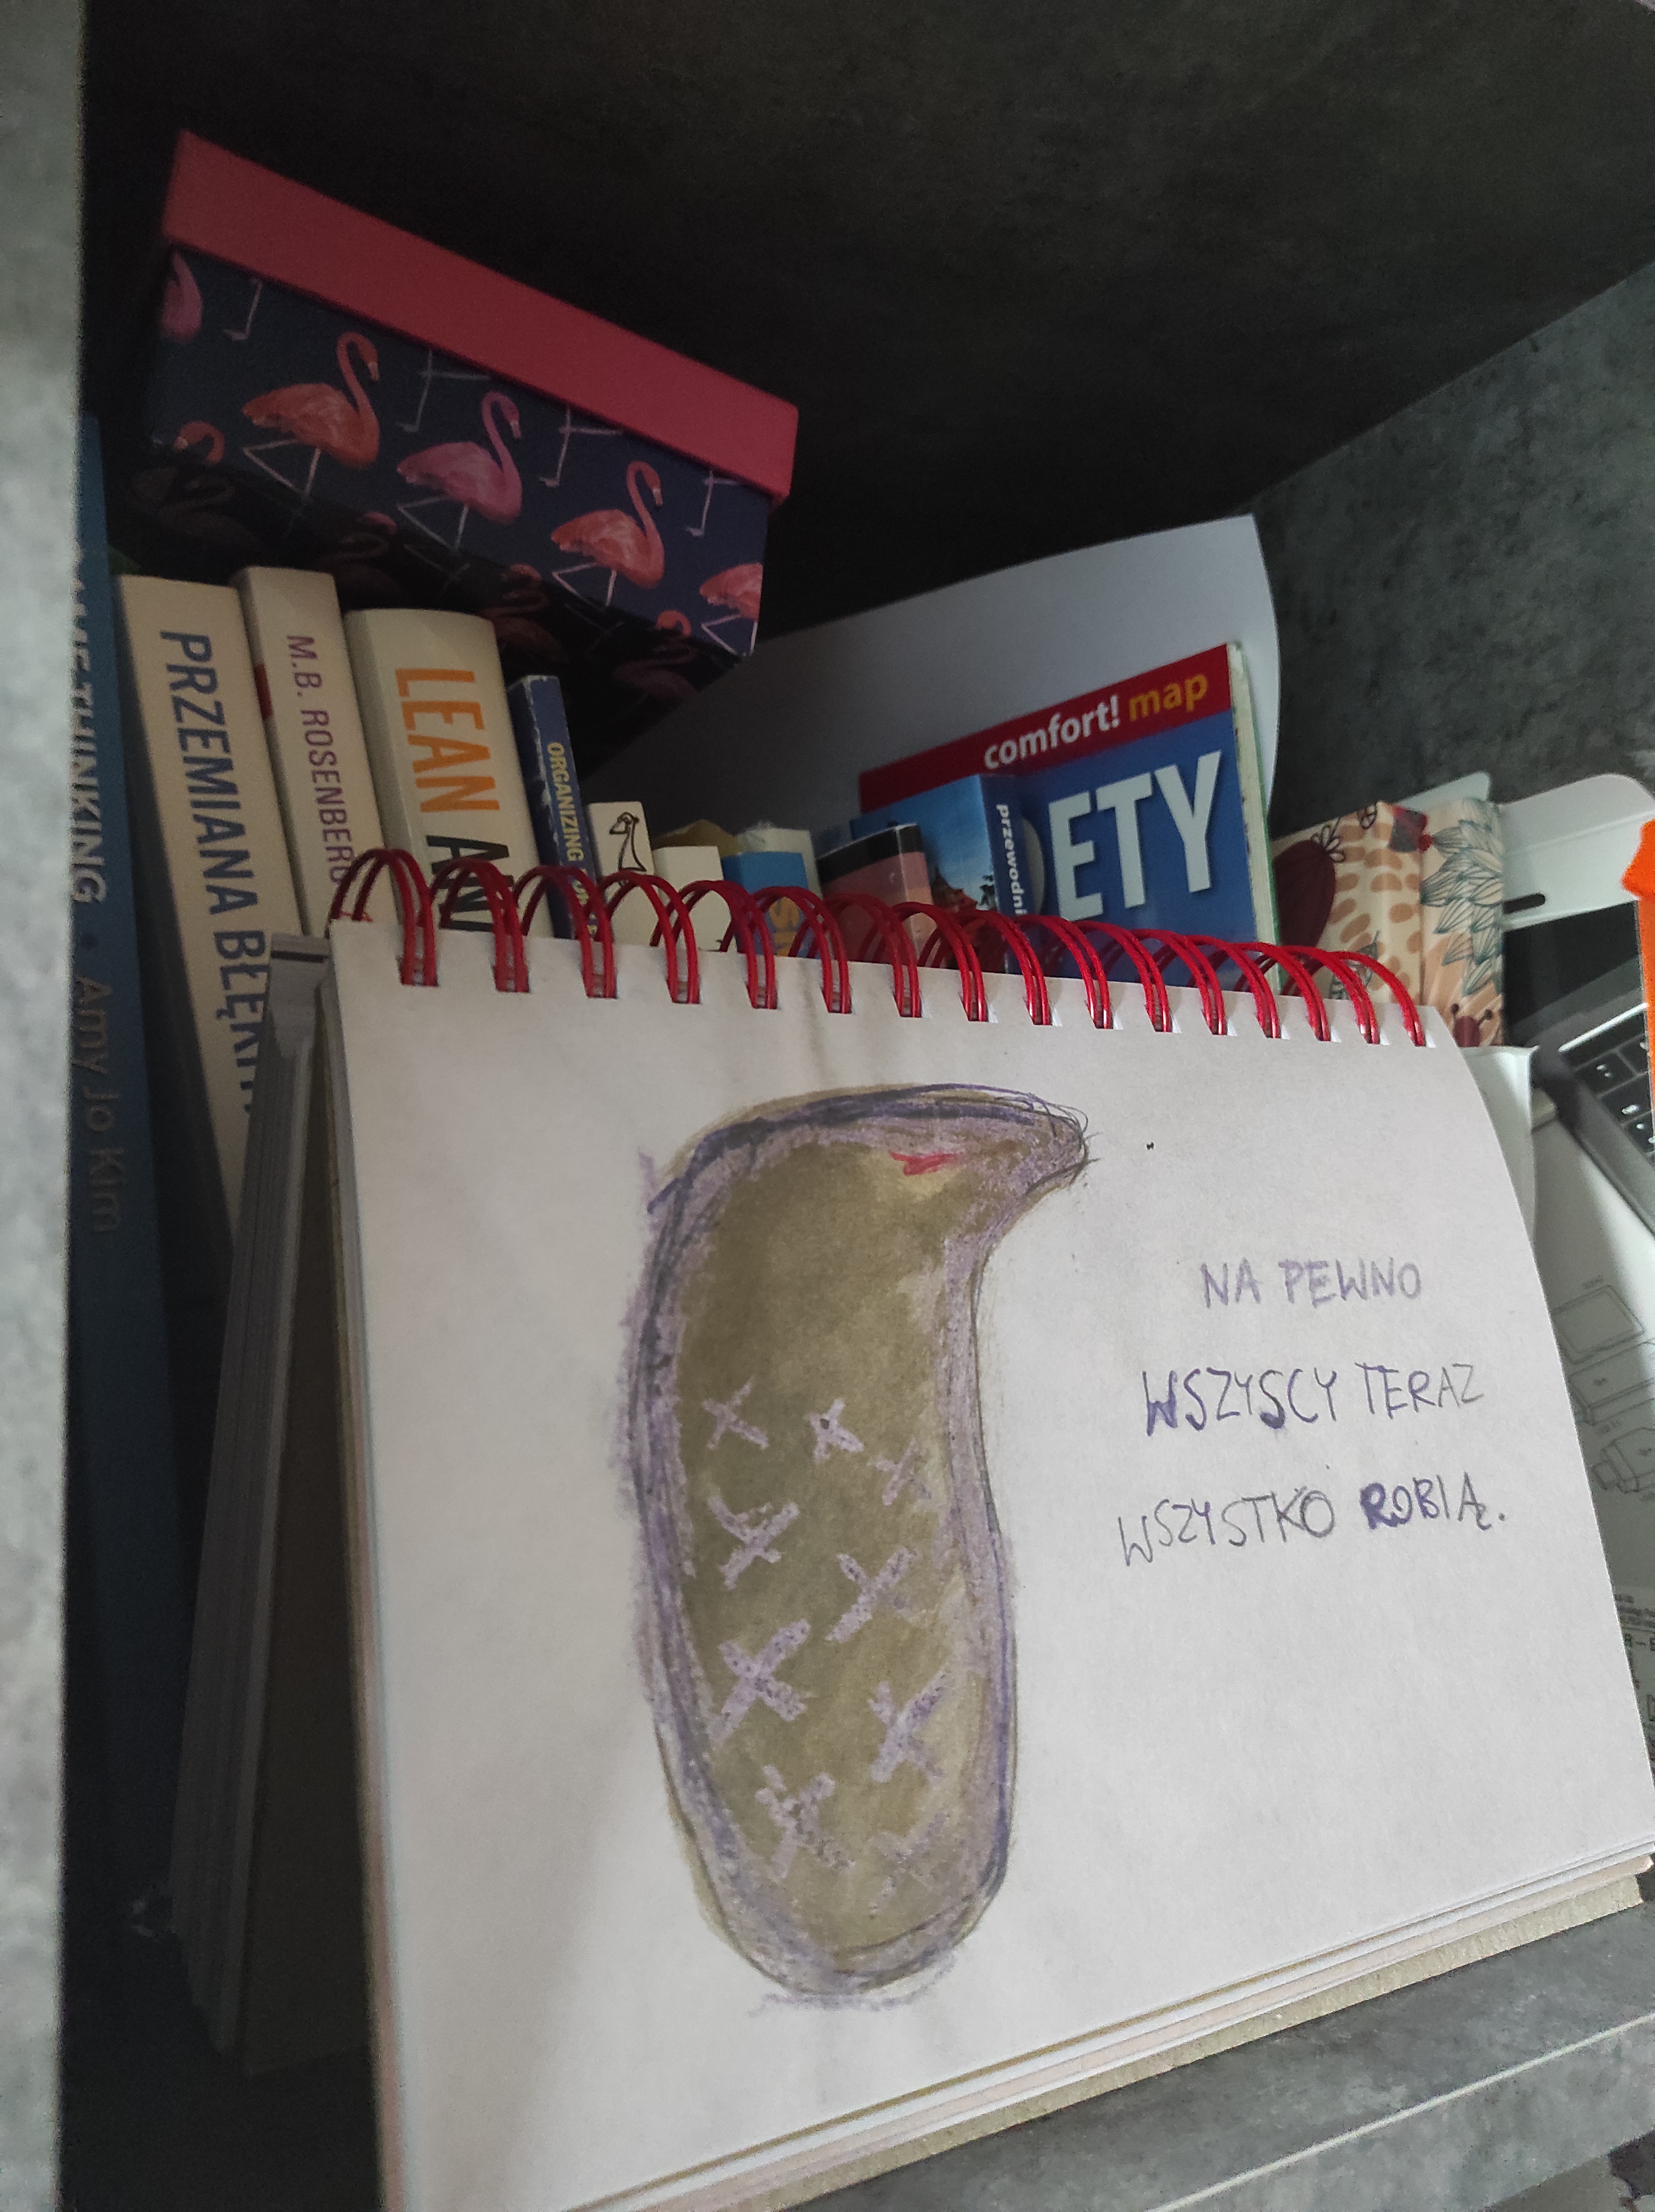 THINKING • Amy Jo Kim
PRZEMIANA
M.B. ROSENBERG
LEAN
ORGANIZING
comfort! map
ETY
NA PEWNO
WSZYSCY TERAZ
WSZYSTKO ROBIĄ.